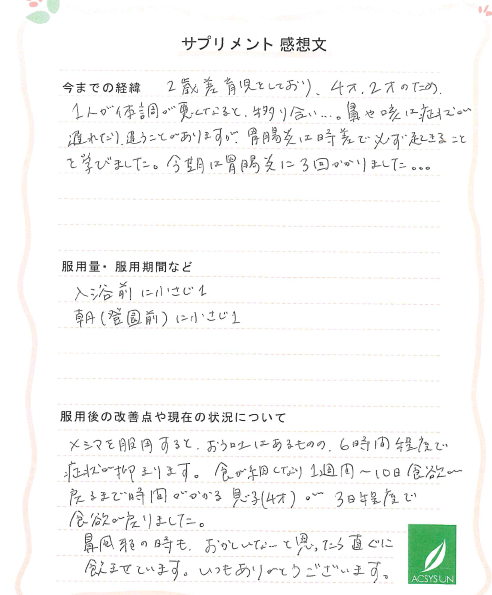 サプリメント 感想文
今までの経緯 2歳差育児をしており、4才、2才のため、
1人が体調が悪くなると、移り合い…。鼻や咳は症状が
遅れたり、違うことがありますが、胃腸炎は時差で必ず起きること
を学びました。今期は胃腸炎に3回かかりました…
服用量・服用期間など
入浴前に小さじ1
朝(登園前)に小さじ1
服用後の改善点や現在の状況について
メシマを服用すると、お口にあるものの、6時間程度で
症状が抑まります。食が細くなり1週間〜10日食欲が
戻るまで時間がかかる息子(4才)が3日程度で
食欲が戻りました。
鼻風邪の時も、おかしいな〜と思ったら直ぐに
飲ませています。いつもありがとうございます。
ACSYSUN